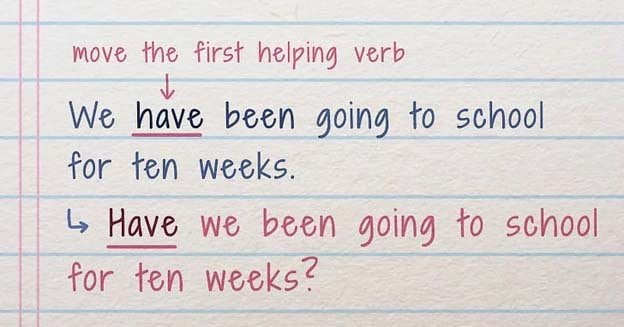 move the first helping verb
We have been going to school
for ten weeks.
↳ Have we been going to school
for ten weeks?